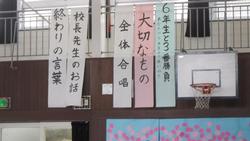 6年生と3番勝負
大切なもの
全体合唱
校長先生のお話
終わりの言葉